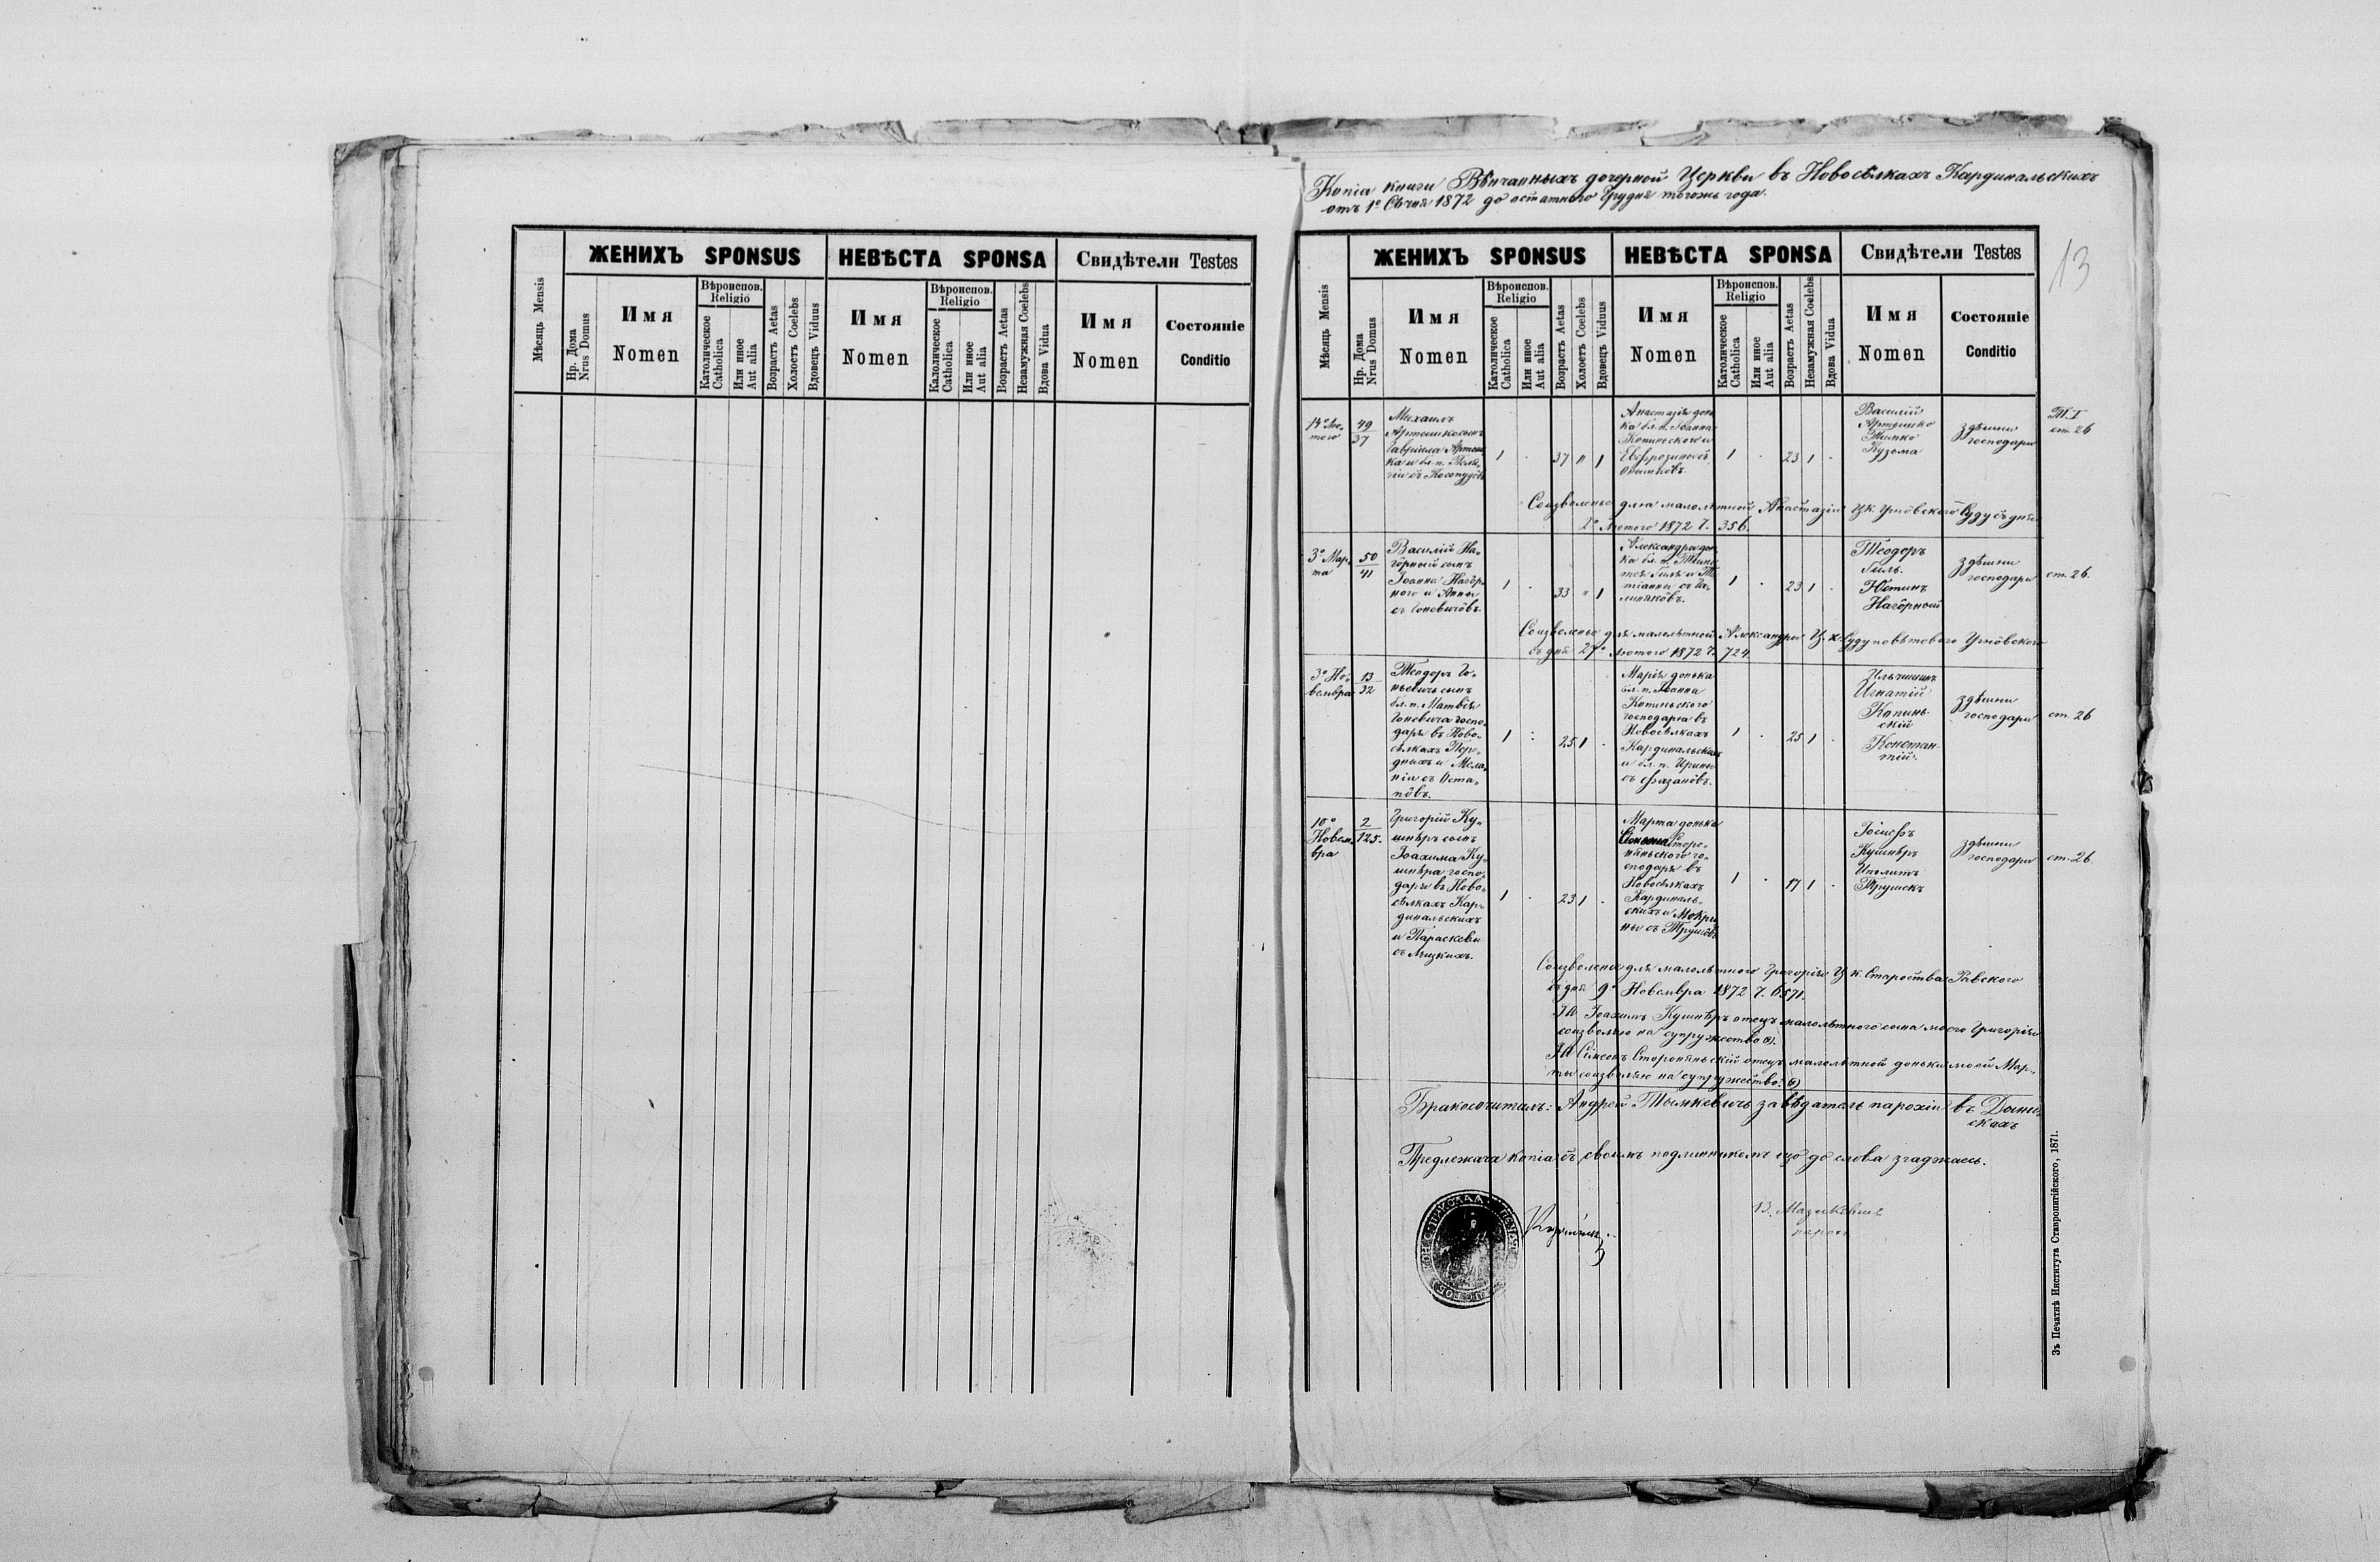 ЖЕНИХЪ SPONSUS
НЕВѢСТА SPONSA
Свидѣтели Testes
Мѣсяць Mensis
Нр. Дома
Nrus Domus
Имя
Nomen
Вѣроиспов.
Religio
Католическое
Catholica
Или иное
Aut alia
Возрасть Aetas
Холостъ Coelebs
Вдовець Viduus
Имя
Nomen
Вѣроиспов.
Religio
Калолическое
Catholica
Или иное
Aut alia
Возрасть Aetas
Незамужная Coelebs
Вдова Vidua
Имя
Nomen
Состояніе
Conditio
Копіа книги Вѣнчанныхъ дочерной Церкви въ Новосѣлкахъ Кардинальскихъ
отъ 1º Сѣчня 1872 до остатного Грудня тогожъ года.
13
ЖЕНИХЪ SPONSUS
НЕВѢСТА SPONSA
Свидѣтели Testes
Мѣсяць Mensis
Нр. Дома
Nrus Domus
Имя
Nomen
Вѣроиспов.
Religio
Католическое
Catholica
Или иное
Aut alia
Возрасть Aetas
Холостъ Coelebs
Вдовець Viduus
Имя
Nomen
Вѣроиспов.
Religio
Католическое
Catholica
Или иное
Aut alia
Возрасть Aetas
Незамужная Coelebs
Вдова Vidua
Имя
Nomen
Состояніе
Conditio
49
37
Михаилъ
Гавріила
1 . 37 " 1
Анастазія донь-
ка бл. п. Іоанна
Копиньского и
Евфрозины съ
1 . 23 1 .
Василій
Артошко
Кузьма
здѣшни
господари
Т. I
ст. 26
Соизволеніе для малолѣтной Анастазіи Ц.к. Угнôвского Суду съ дня
2º Лютого 1872 Ч. 356.
3º Мар-
та
50
41
Василій На-
гôрный сынъ
Іоанна Нагôр-
ного и Анны
съ Гоневичôвъ.
1 . 33 " 1
Александра донь-
ка бл. п.
1 . 23 1 .
Теодоръ
Гиль.
Юстинъ
Нагôрный
здѣшни
господари
ст. 26.
Соизволеніе для малолѣтной Александры Ц. к. Суду повѣтового Угнôвского
съ дня 27º Лютого 1872 Ч. 724.
3º Но-
вембра
13
32
Теодоръ Го-
невичъ сынъ
бл. п. Матвѣя
Гоневича госпо-
даря въ Ново-
сѣлкахъ Пере-
дныхъ и Мела-
ніи съ Оста-
пôвъ.
1 : 25 1 .
Марія донька
бл. п. Іоанна
Копиньского
господаря въ
Новосѣлкахъ
Кардинальскихъ
и бл. п. Ирины
съ Фазанôвъ.
1 . 25 1 .
Игнатій
Копинь-
скій
Констан-
тій.
здѣшни
господари
ст. 26
10º
Новем-
бра
2
125.
Григорій Ку-
шнѣръ сынъ
Іоахима Ку-
шнѣра госпо-
даря въ Ново-
сѣлкахъ Кар-
динальскихъ
и Параскевы
съ Лизкихъ.
1 . 23 1 .
Марта донька
Сторо-
няньского го-
сподаря въ
Новосѣлкахъ
Кардиналь-
скихъ и Мокри-
ны съ Трушôвъ
1 . 17 1 .
Іосифъ
Кушнѣръ
Иполитъ
Трушекъ
здѣшни
господари
ст. 26.
Соизволеніе для малолѣтного Григорія Ц. к. Староства Равского
съ дня 9º Новембра 1872 Ч. 6571.
Я Іоахимъ Кушнѣръ отецъ малолѣтного сына моего Григорія
соизволяю на супружество
Я Симеонъ Стороняньскій отецъ малолѣтной доньки моей Мар-
ты соизволяю на супружество.
Бракосочиталъ: Андрей Тымкевичъ завѣдатель парохіи въ Дыни-
скахъ
Предлежача копіа съ своимъ подлинникомъ що до слова згаджаесь.
В. Мазикевич
парох
Зъ Печатнѣ Института Ставропигійского, 1871.